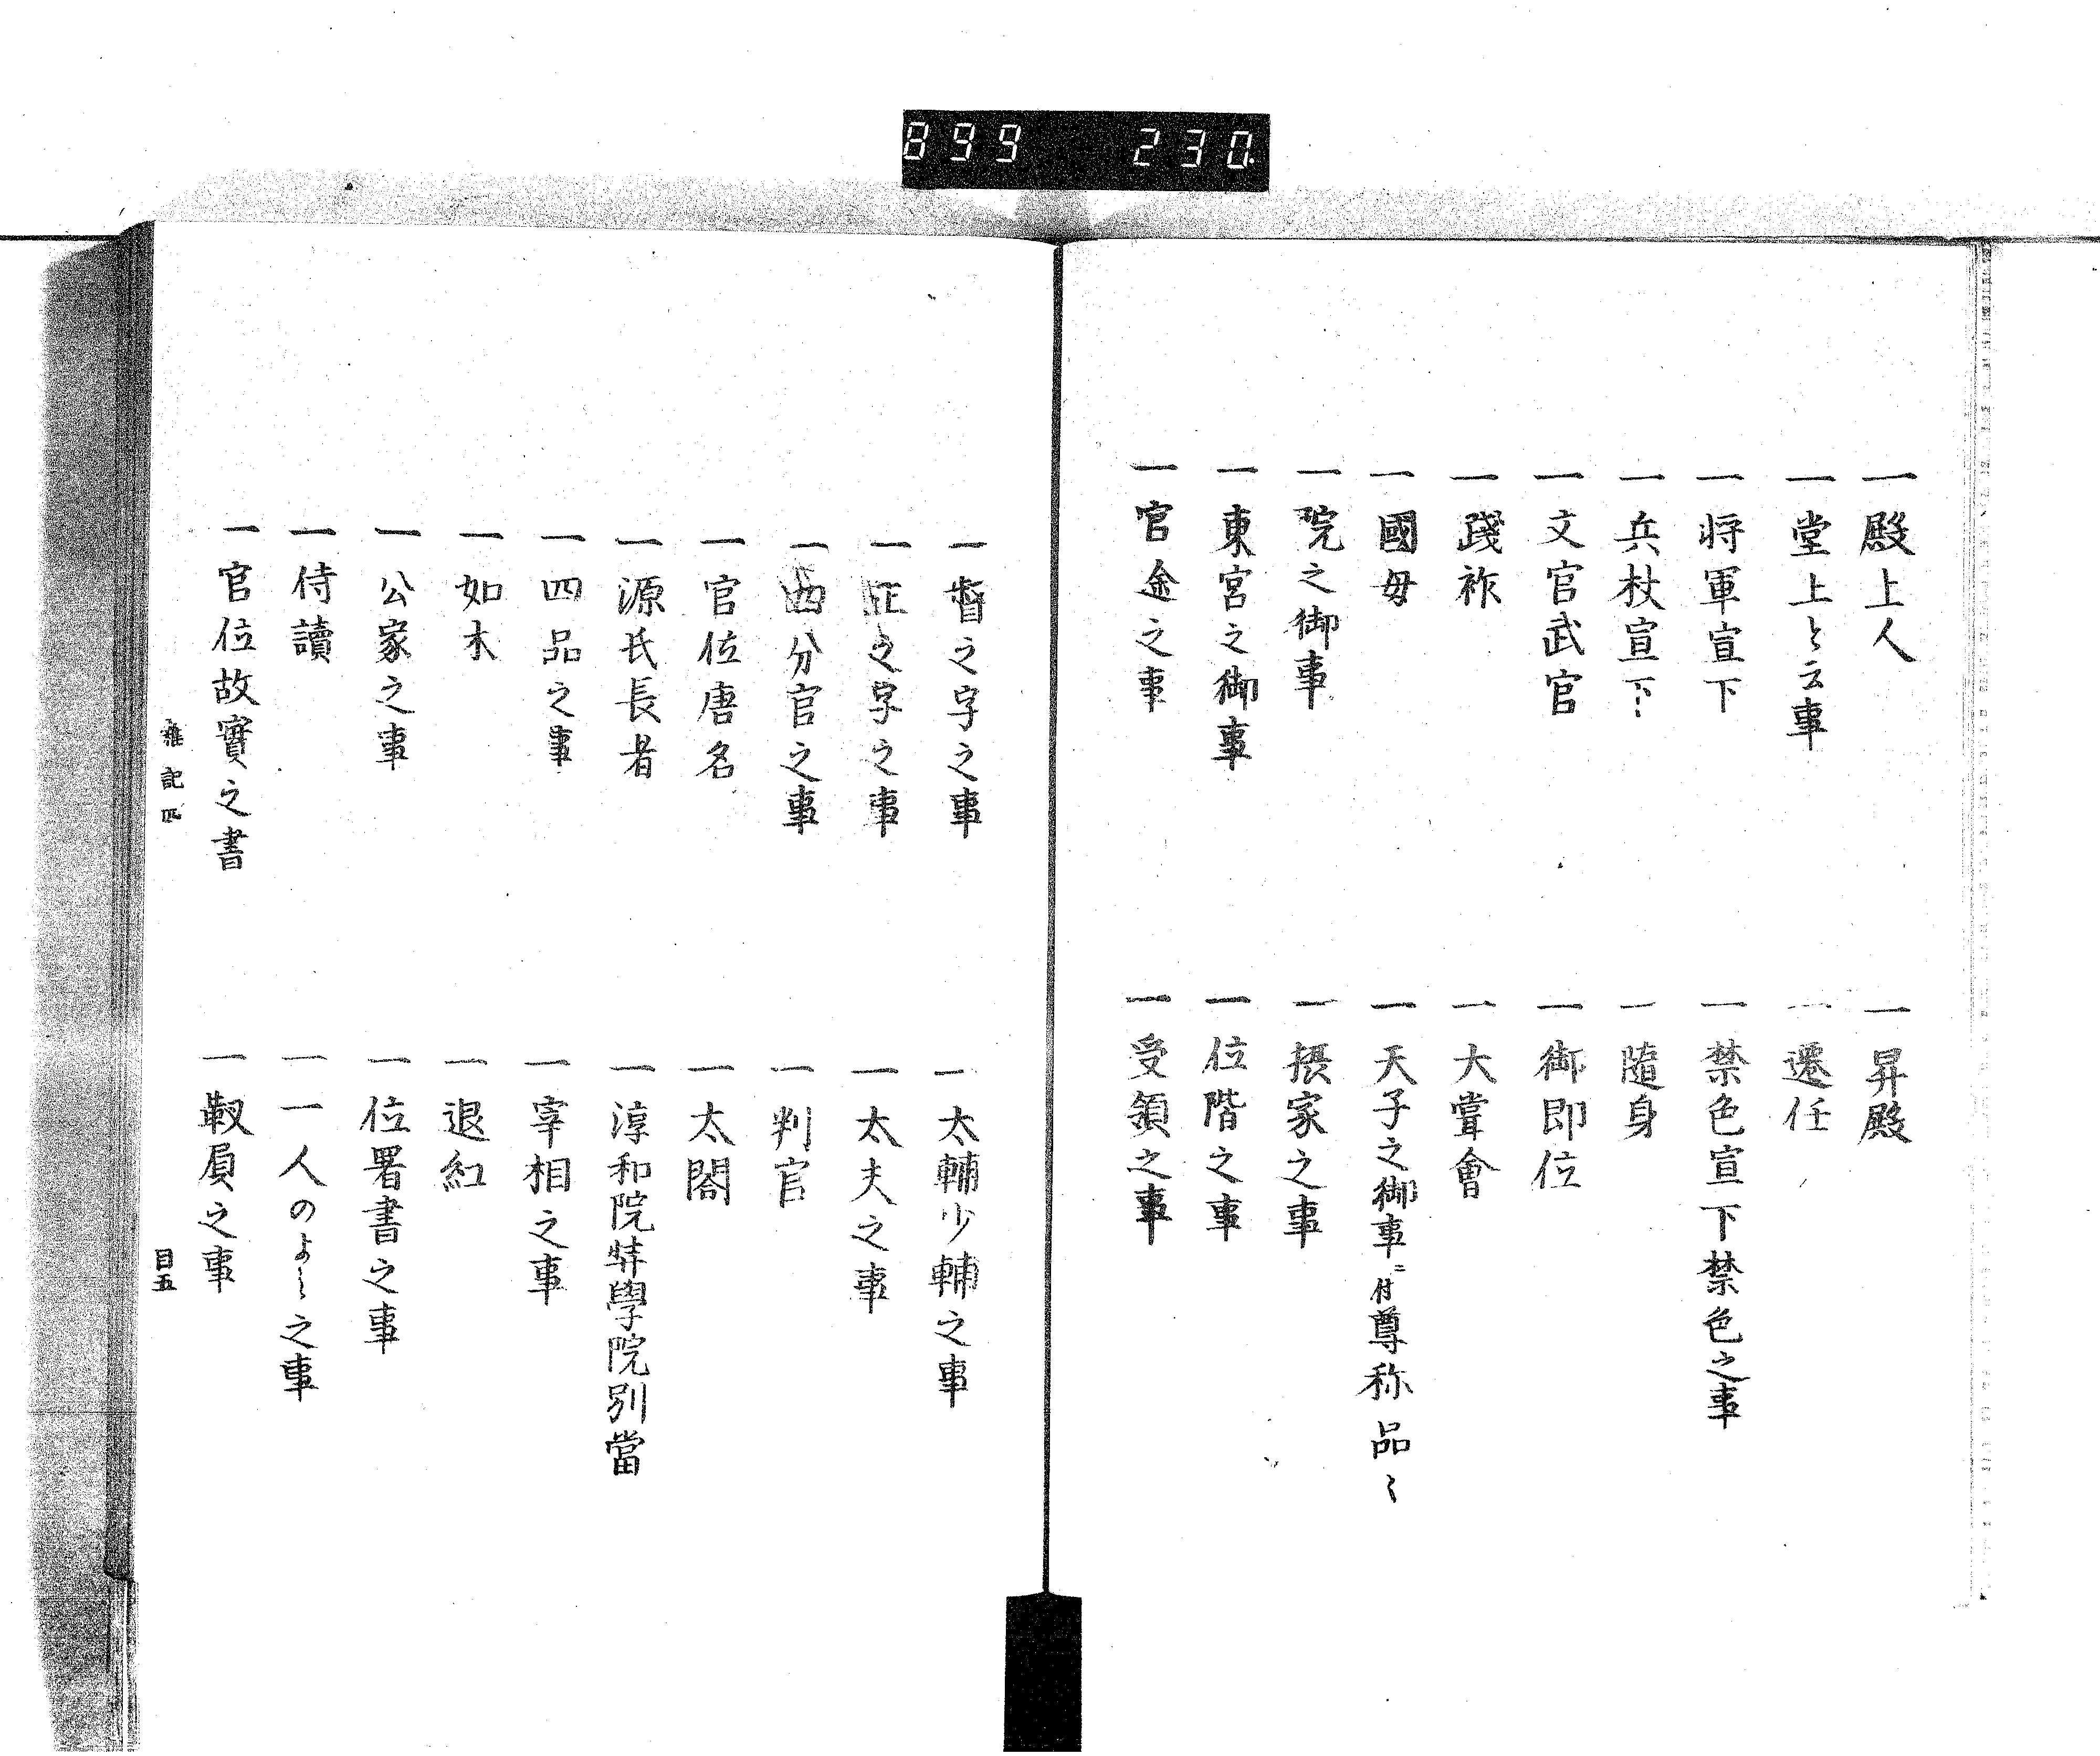 899 230
一殿上人
一昇殿
一堂上と云事
一遷任
一将軍宣下
一禁色宣下禁色之事
一兵杖宣下
一隨身
一文官武官
一御即位
一踐祚
一大甞會
一國母
一天子之御事ニ付尊称品〻
一院之御事
一摂家之事
一東宮之御事
一位階之事
一官途之事
一受領之事
一督之字之事
一太輔少輔之事
一正之字之事
一太夫之事
一四分官之事
一判官
一官位唐名
一太閤
一源氏長者
一淳和院弉學院別當
一四品之事
一宰相之事
一如木
一退紅
一公家之事
一位署書之事
一侍讀
一一人のよし之事
一官位故實之書
一靫屓之事
雜記四
目五